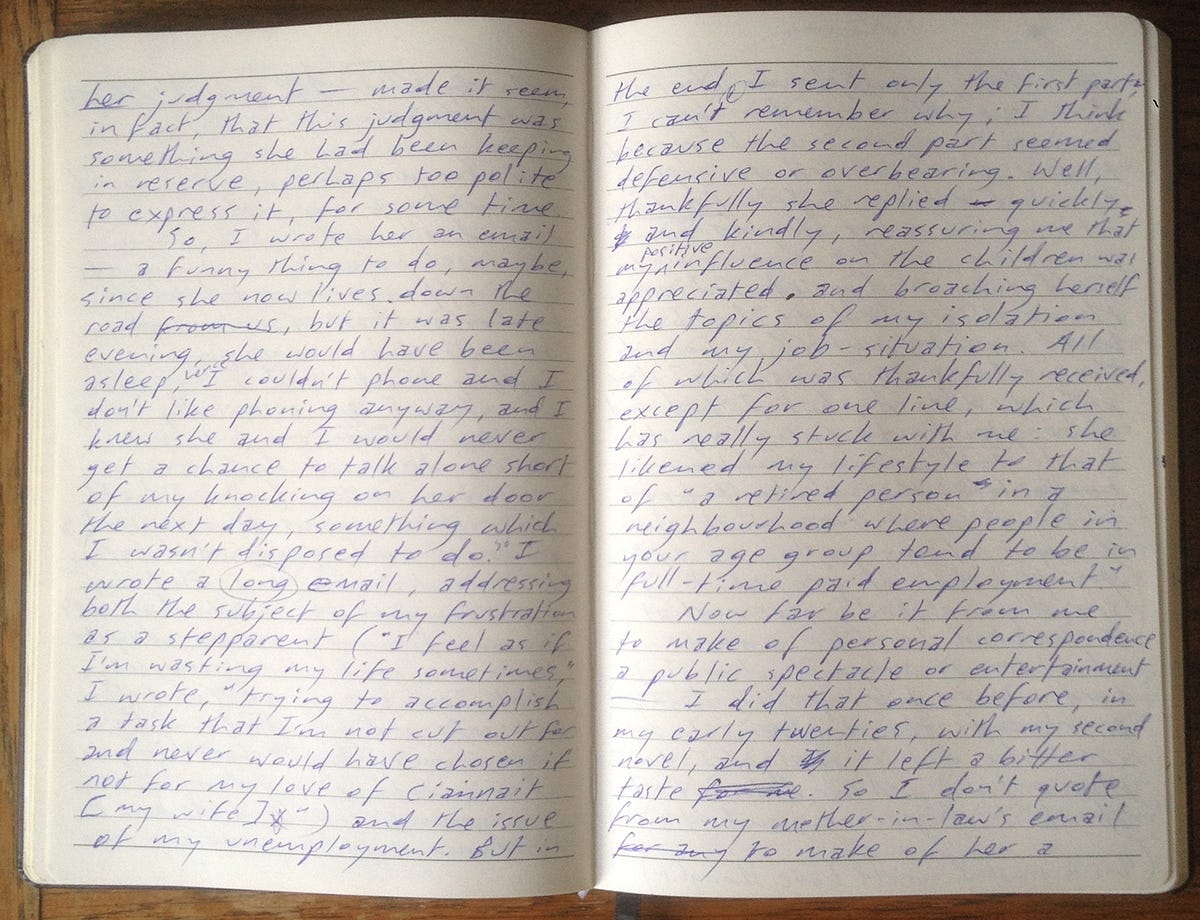 her judgment — made it seem,
in fact, that this judgment was
something she had been keeping
in reserve, perhaps too polite
to express it, for some time.
So, I wrote her an email
— a funny thing to do, maybe,
since she now lives down the
road from us, but it was late
evening, she would have been
asleep, I couldn't phone and I
don't like phoning anyway, and I
knew she and I would never
get a chance to talk alone short
of my knocking on her door
the next day, something which
I wasn't disposed to do. I
wrote a long email, addressing
both the subject of my frustration
as a stepparent ("I feel as if
I'm wasting my life sometimes,"
I wrote, "trying to accomplish
a task that I'm not cut out for
and never would have chosen if
not for my love of Ciannait
[my wife]") and the issue
of my unemployment. But in
the end, I sent only the first part,
I can't remember why; I think
because the second part seemed
defensive or overbearing. Well,
thankfully she replied quickly
and kindly, reassuring me that
my positive influence on the children was
appreciated. and broaching herself
the topics of my isolation
and my job-situation. All
of which was thankfully received,
except for one line, which
has really stuck with me: she
likened my lifestyle to that
of "a retired person in a
neighbourhood where people in
your age group tend to be in
full-time paid employment"
Now far be it from me
to make of personal correspondence
a public spectacle or entertainment
— I did that once before, in
my early twenties, with my second
novel, and it left a bitter
taste for me. So I don't quote
from my mother-in-law's email
for any to make of her a